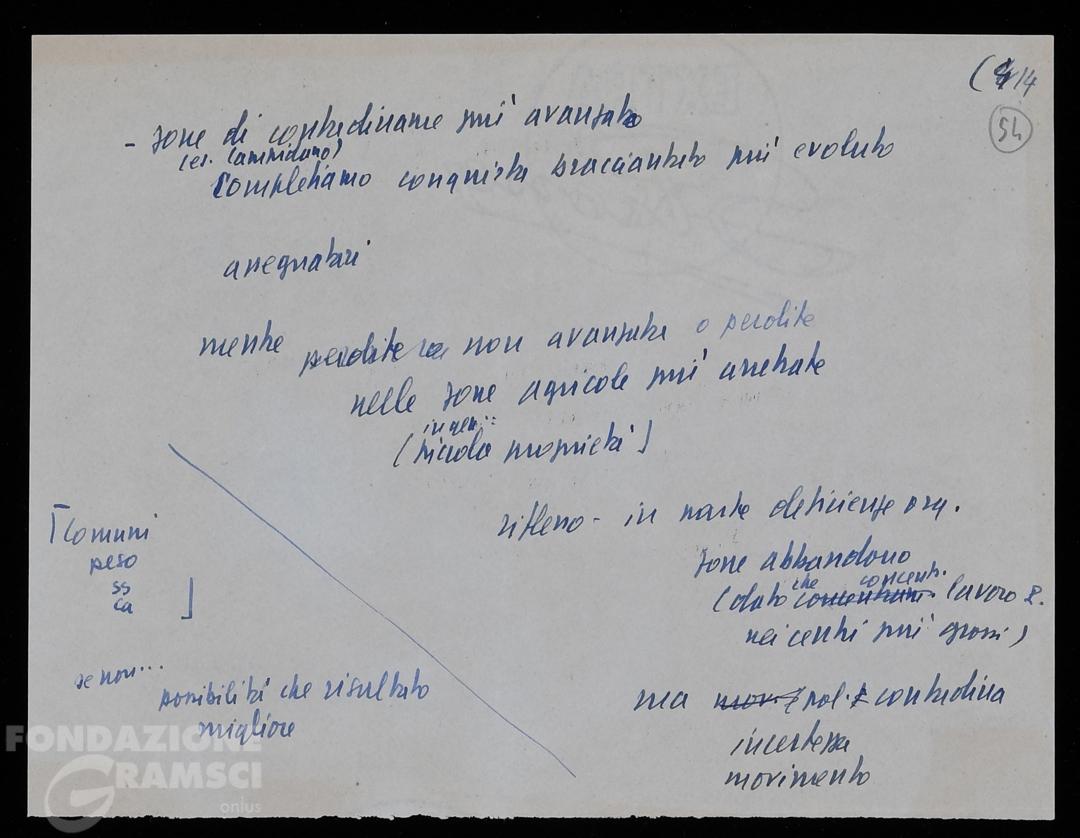 (4 14
54
- zone di contadiname più avanzato
(es. Campidano)
Completiamo conquista bracciantato più evoluto
assegnatari
mentre perdite non avanzata o perdite
nelle zone agricole più arretrate
in gen::
(piccola proprietà)
riflesso - in parte deficienze org.
zone abbandono
(dato che concentr. lavoro P.
nei centri più grossi)
ma pol. contadina
incertezza
movimento
[Comuni
peso
SS
Ca ]
se non...
possibilità che risultato
migliore
FONDAZIONE
GRAMSCI
onlus